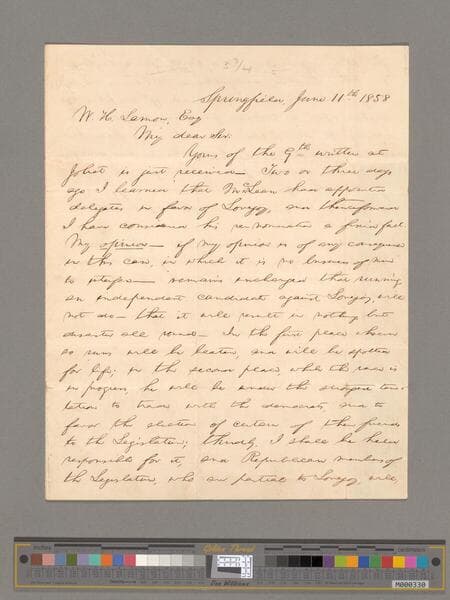 Springfield, June 11th 1858
W. H. Lamon, Esq
My dear Sir:
Yours of the 9th written at
Joliet is just received. Two or three days
ago I learned that McLean had appointed
delegates in favor of Lovejoy, and thenceforward
I have considered his renomination a fixed fact.
My opinion — if my opinion is of any consequence
in this case, in which it is no business of mine
to interfere — remains unchanged that running
an independent candidate against Lovejoy, will
not do — that it will result in nothing but
disaster all round. In the first place whoever
so runs will be beaten, and will be spotted
for life; in the second place, while the race is
in progress, he will be under the strongest temp-
tation to trade with the democrats, and to
favor the election of certain of their friends
to the Legislature; thirdly, I shall be held
responsible for it, and Republican members of
the Legislature, who are partial to Lovejoy, will,
inches
centimeters
Golden Thread
Don Williams
M000330